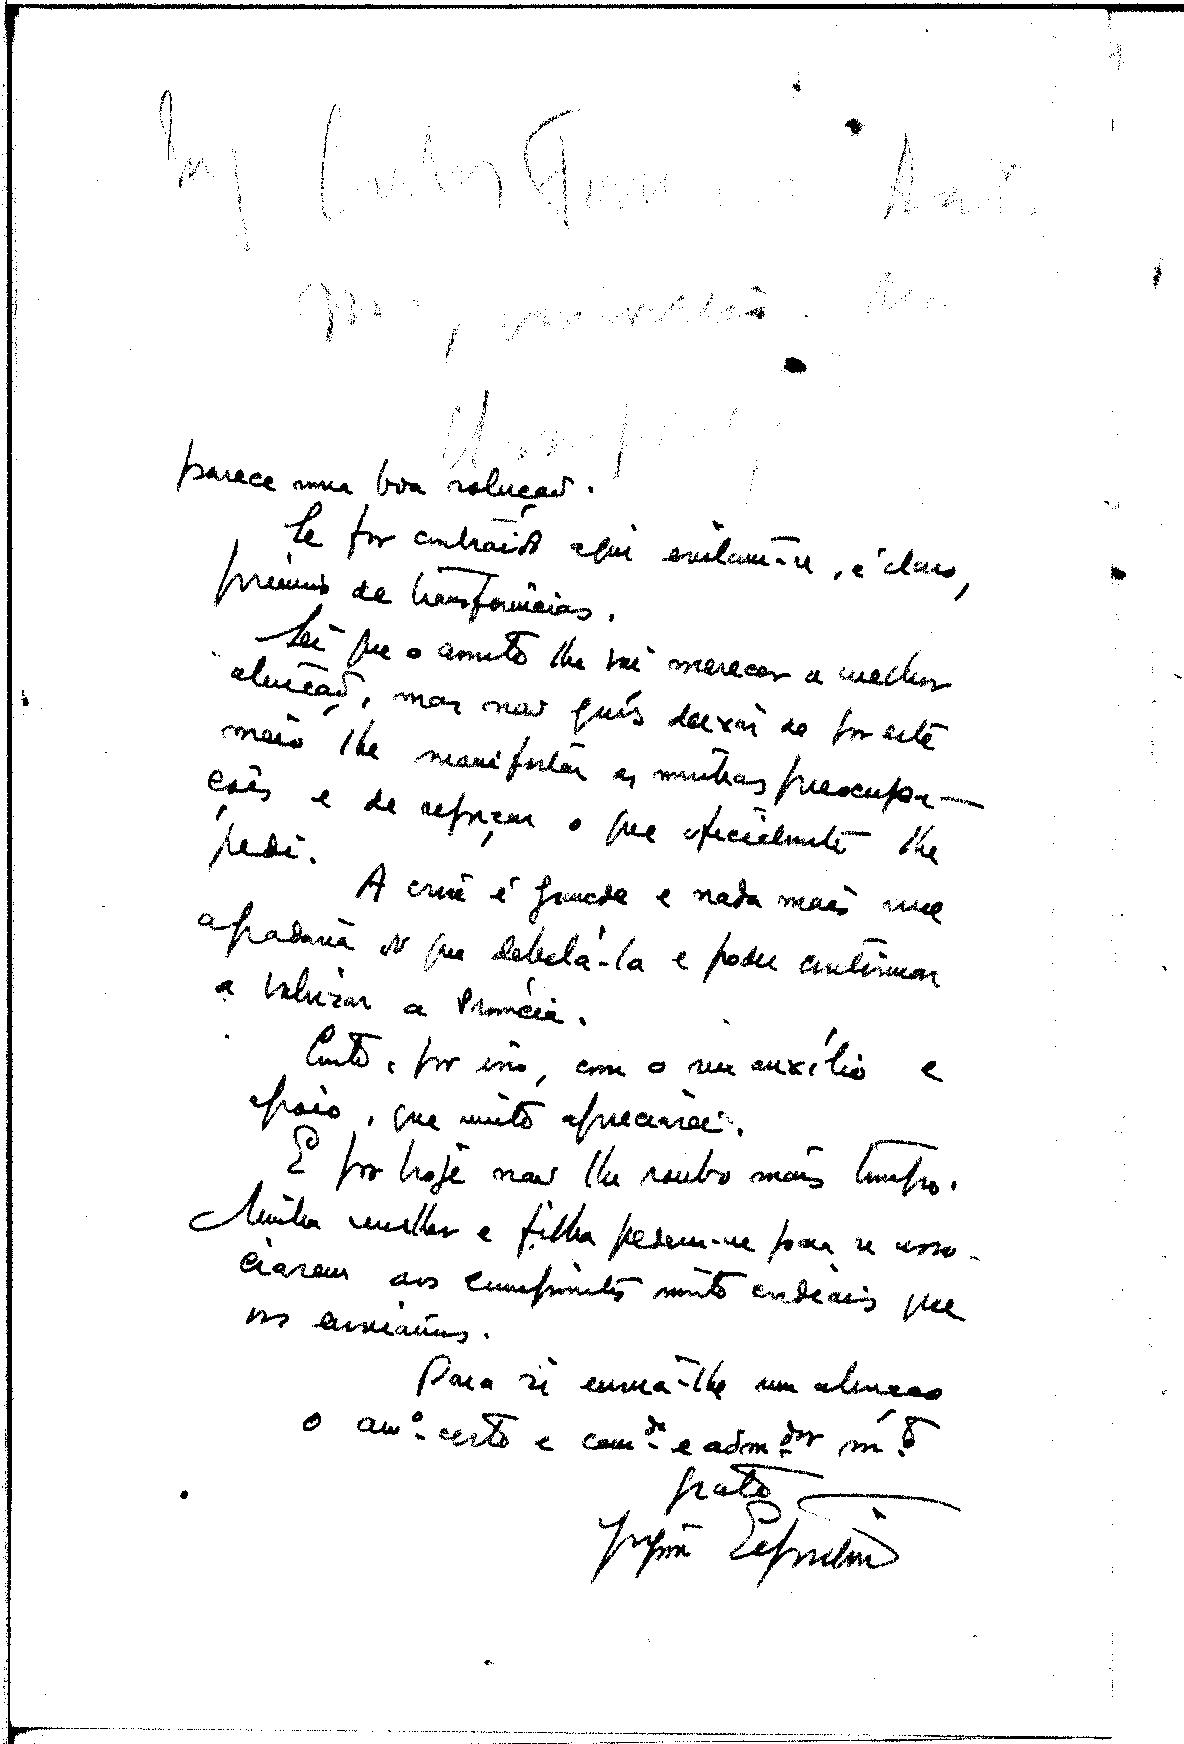 Carlos
parece uma boa solução.
Se for contraído aqui evitam-se, é claro,
prémios de transferências.
Sei que o assunto lhe vai merecer a melhor
atenção, mas não quis deixar de por este
meio lhe manifestar as minhas preocupa-
ções e de reforçar o que oficialmente lhe
pedi.
A crise é grande e nada mais me
agradaria do que debelá-la e poder continuar
a valorizar a Província.
Conto, por isso, com o seu auxílio e
apoio, que muito apreciarei.
E por hoje não lhe roubo mais tempo.
Minha mulher e filha pedem-me para se asso-
ciarem aos cumprimentos muito cordiais que
vos enviamos.
Para si envia-lhe um abraço
o amº. certo e camª. e admdor. mtº
grato